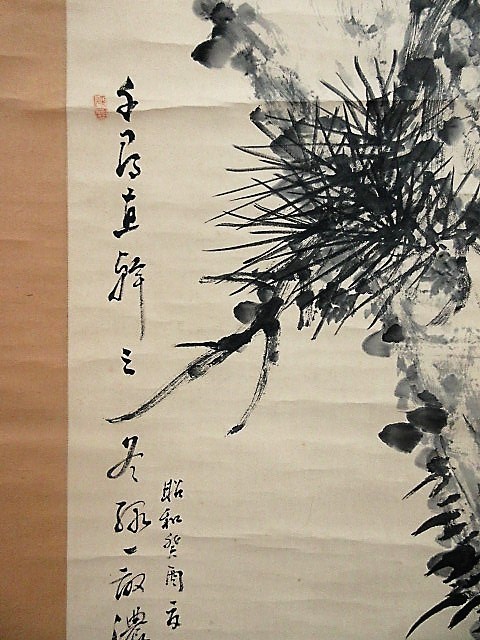 千尋直幹三冬緑一段濃
昭和癸酉夏